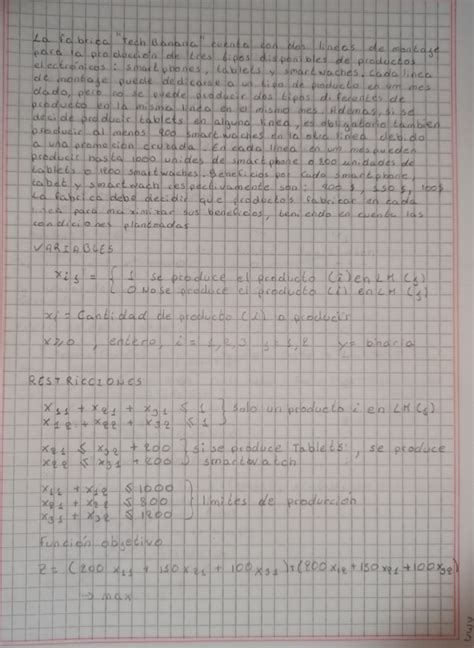 La fabrica "Tech Banana" cuenta con dos lineas de montaje
para la producción de tres tipos disponibles de productos
electrónicos: smartphones, tablets y smartwaches. Cada linea
de montaje puede dedicarse a un tipo de producto en un mes
dado, pero no se puede producir dos tipos diferentes de
producto en la misma linea en el mismo mes. Además, si se
decide producir tablets en alguna linea, es obligatorio tambien
producir al menos 200 smartwaches en la otra linea debido
a una promoción cruzada. En cada linea en un mes pueden
producir hasta 1000 unides de smartphone o 800 unidades de
tablets o 1200 smartwaches. Beneficios por cada smartphone,
tablet y smartwach respectivamente son: 200 $, 150 $, 100 $
La fabrica debe decidir que productos fabricar en cada
linea para maximizar sus beneficios, teniendo en cuenta las
condiciones planteadas
VARIABLES
xij = { 1 se produce el producto (i) en LM (j)
0 No se produce el producto (i) en LM (j)
xi = Cantidad de producto (i) a producir
x≥0, entero, i = 1,2,3 j = 1,2 y = binaria
RESTRICCIONES
x11 + x21 + x31 ≤ 1 } Solo un producto i en LM (j)
x12 + x22 + x32 ≤ 1
x21 ≤ x32 + 200 } si se produce Tablets, se produce
x22 ≤ x31 + 200 smartwatch
x11 + x12 ≤ 1000
x21 + x22 ≤ 800 } limites de producción
x31 + x32 ≤ 1200
función objetivo
Z = (200 x11 + 150 x21 + 100 x31) + (200 x12 + 150 x21 + 100 x32)
→ max